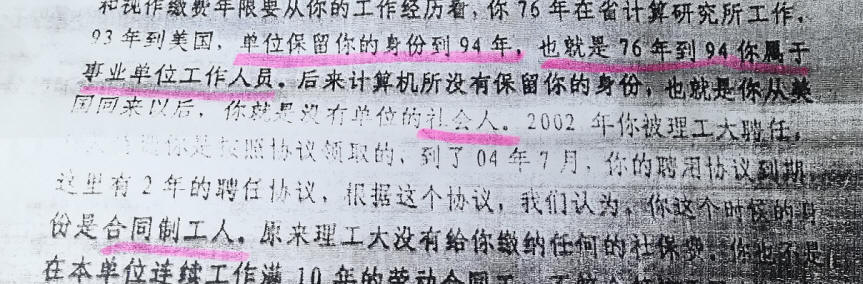 和视作缴费年限要从你的工作经历看，你 76 年在省计算研究所工作，
93 年到美国，单位保留你的身份到 94 年，也就是 76 年到 94 你属于
事业单位工作人员。后来计算机所没有保留你的身份，也就是你从美
国回来以后，你就是没有单位的社会人。2002 年你被理工大聘任，
你是按照协议领取的，到了 04 年 7 月，你的聘用协议到期，
这里有 2 年的聘任协议，根据这个协议，我们认为，你这个时候的身
份是合同制工人。原来理工大没有给你缴纳任何的社保费。你也不是
在本单位连续工作满 10 年的劳动合同工，